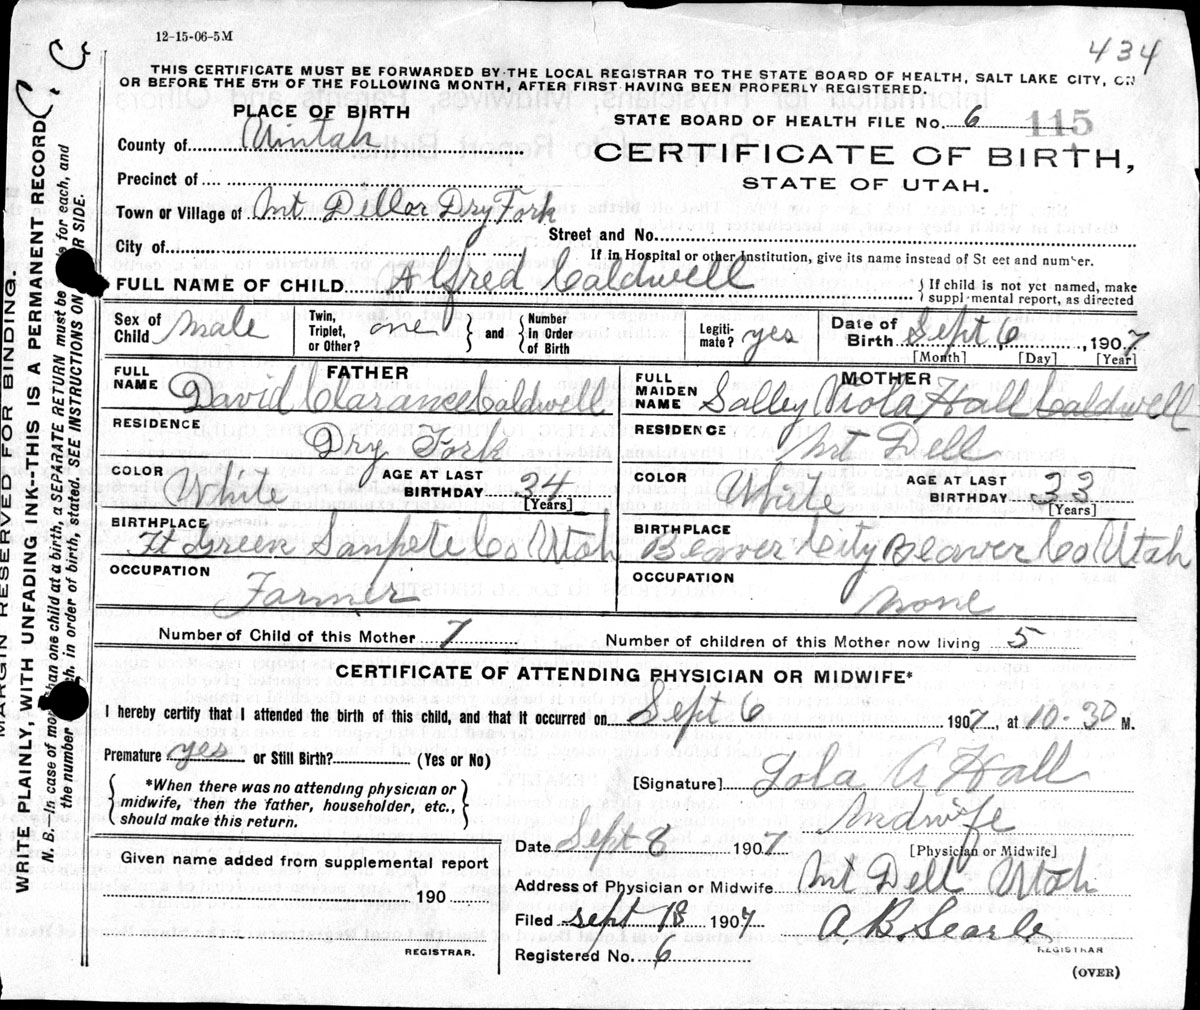 12-15-06-5M
434
THIS CERTIFICATE MUST BE FORWARDED BY THE LOCAL REGISTRAR TO THE STATE BOARD OF HEALTH, SALT LAKE CITY, ON
OR BEFORE THE 5TH OF THE FOLLOWING MONTH, AFTER FIRST HAVING BEEN PROPERLY REGISTERED.
PLACE OF BIRTH
County of Uintah
Precinct of
Town or Village of Mt Dell or Dry Fork
City of
STATE BOARD OF HEALTH FILE No. 6 115
CERTIFICATE OF BIRTH,
STATE OF UTAH.
Street and No.
If in Hospital or other Institution, give its name instead of St eet and number.
FULL NAME OF CHILD Alfred Caldwell
If child is not yet named, make
suppl·mental report, as directed
Sex of Child Male
Twin, Triplet, or Other? one and Number in Order of Birth
Legitimate? yes
Date of Birth Sept 6, 1907
[Month] [Day] [Year]
FATHER
FULL NAME David Clarance Caldwell
RESIDENCE Dry Fork
COLOR White AGE AT LAST BIRTHDAY 34 [Years]
BIRTHPLACE Ft Green Sanpete Co Utah
OCCUPATION Farmer
MOTHER
FULL MAIDEN NAME Salley Viola Hall Caldwell
RESIDENCE Mt Dell
COLOR White AGE AT LAST BIRTHDAY 33 [Years]
BIRTHPLACE Beaver City Beaver Co Utah
OCCUPATION none
Number of Child of this Mother 7 Number of children of this Mother now living 5
CERTIFICATE OF ATTENDING PHYSICIAN OR MIDWIFE*
I hereby certify that I attended the birth of this child, and that it occurred on Sept 6 1907 at 10-30 M.
Premature yes or Still Birth? (Yes or No)
*When there was no attending physician or
midwife, then the father, householder, etc.,
should make this return.
Given name added from supplemental report
190
REGISTRAR.
[Signature] Lola A Hall
Midwife
[Physician or Midwife]
Date Sept 8 1907
Address of Physician or Midwife Mt Dell Utah
Filed Sept 18 1907 A. B. Searle
REGISTRAR
Registered No. 6
(OVER)
MARGIN RESERVED FOR BINDING.
WRITE PLAINLY, WITH UNFADING INK--THIS IS A PERMANENT RECORD
N. B.--In case of more than one child at a birth, a SEPARATE RETURN must be for each, and
the number in order of birth, stated. SEE INSTRUCTIONS ON SIDE.